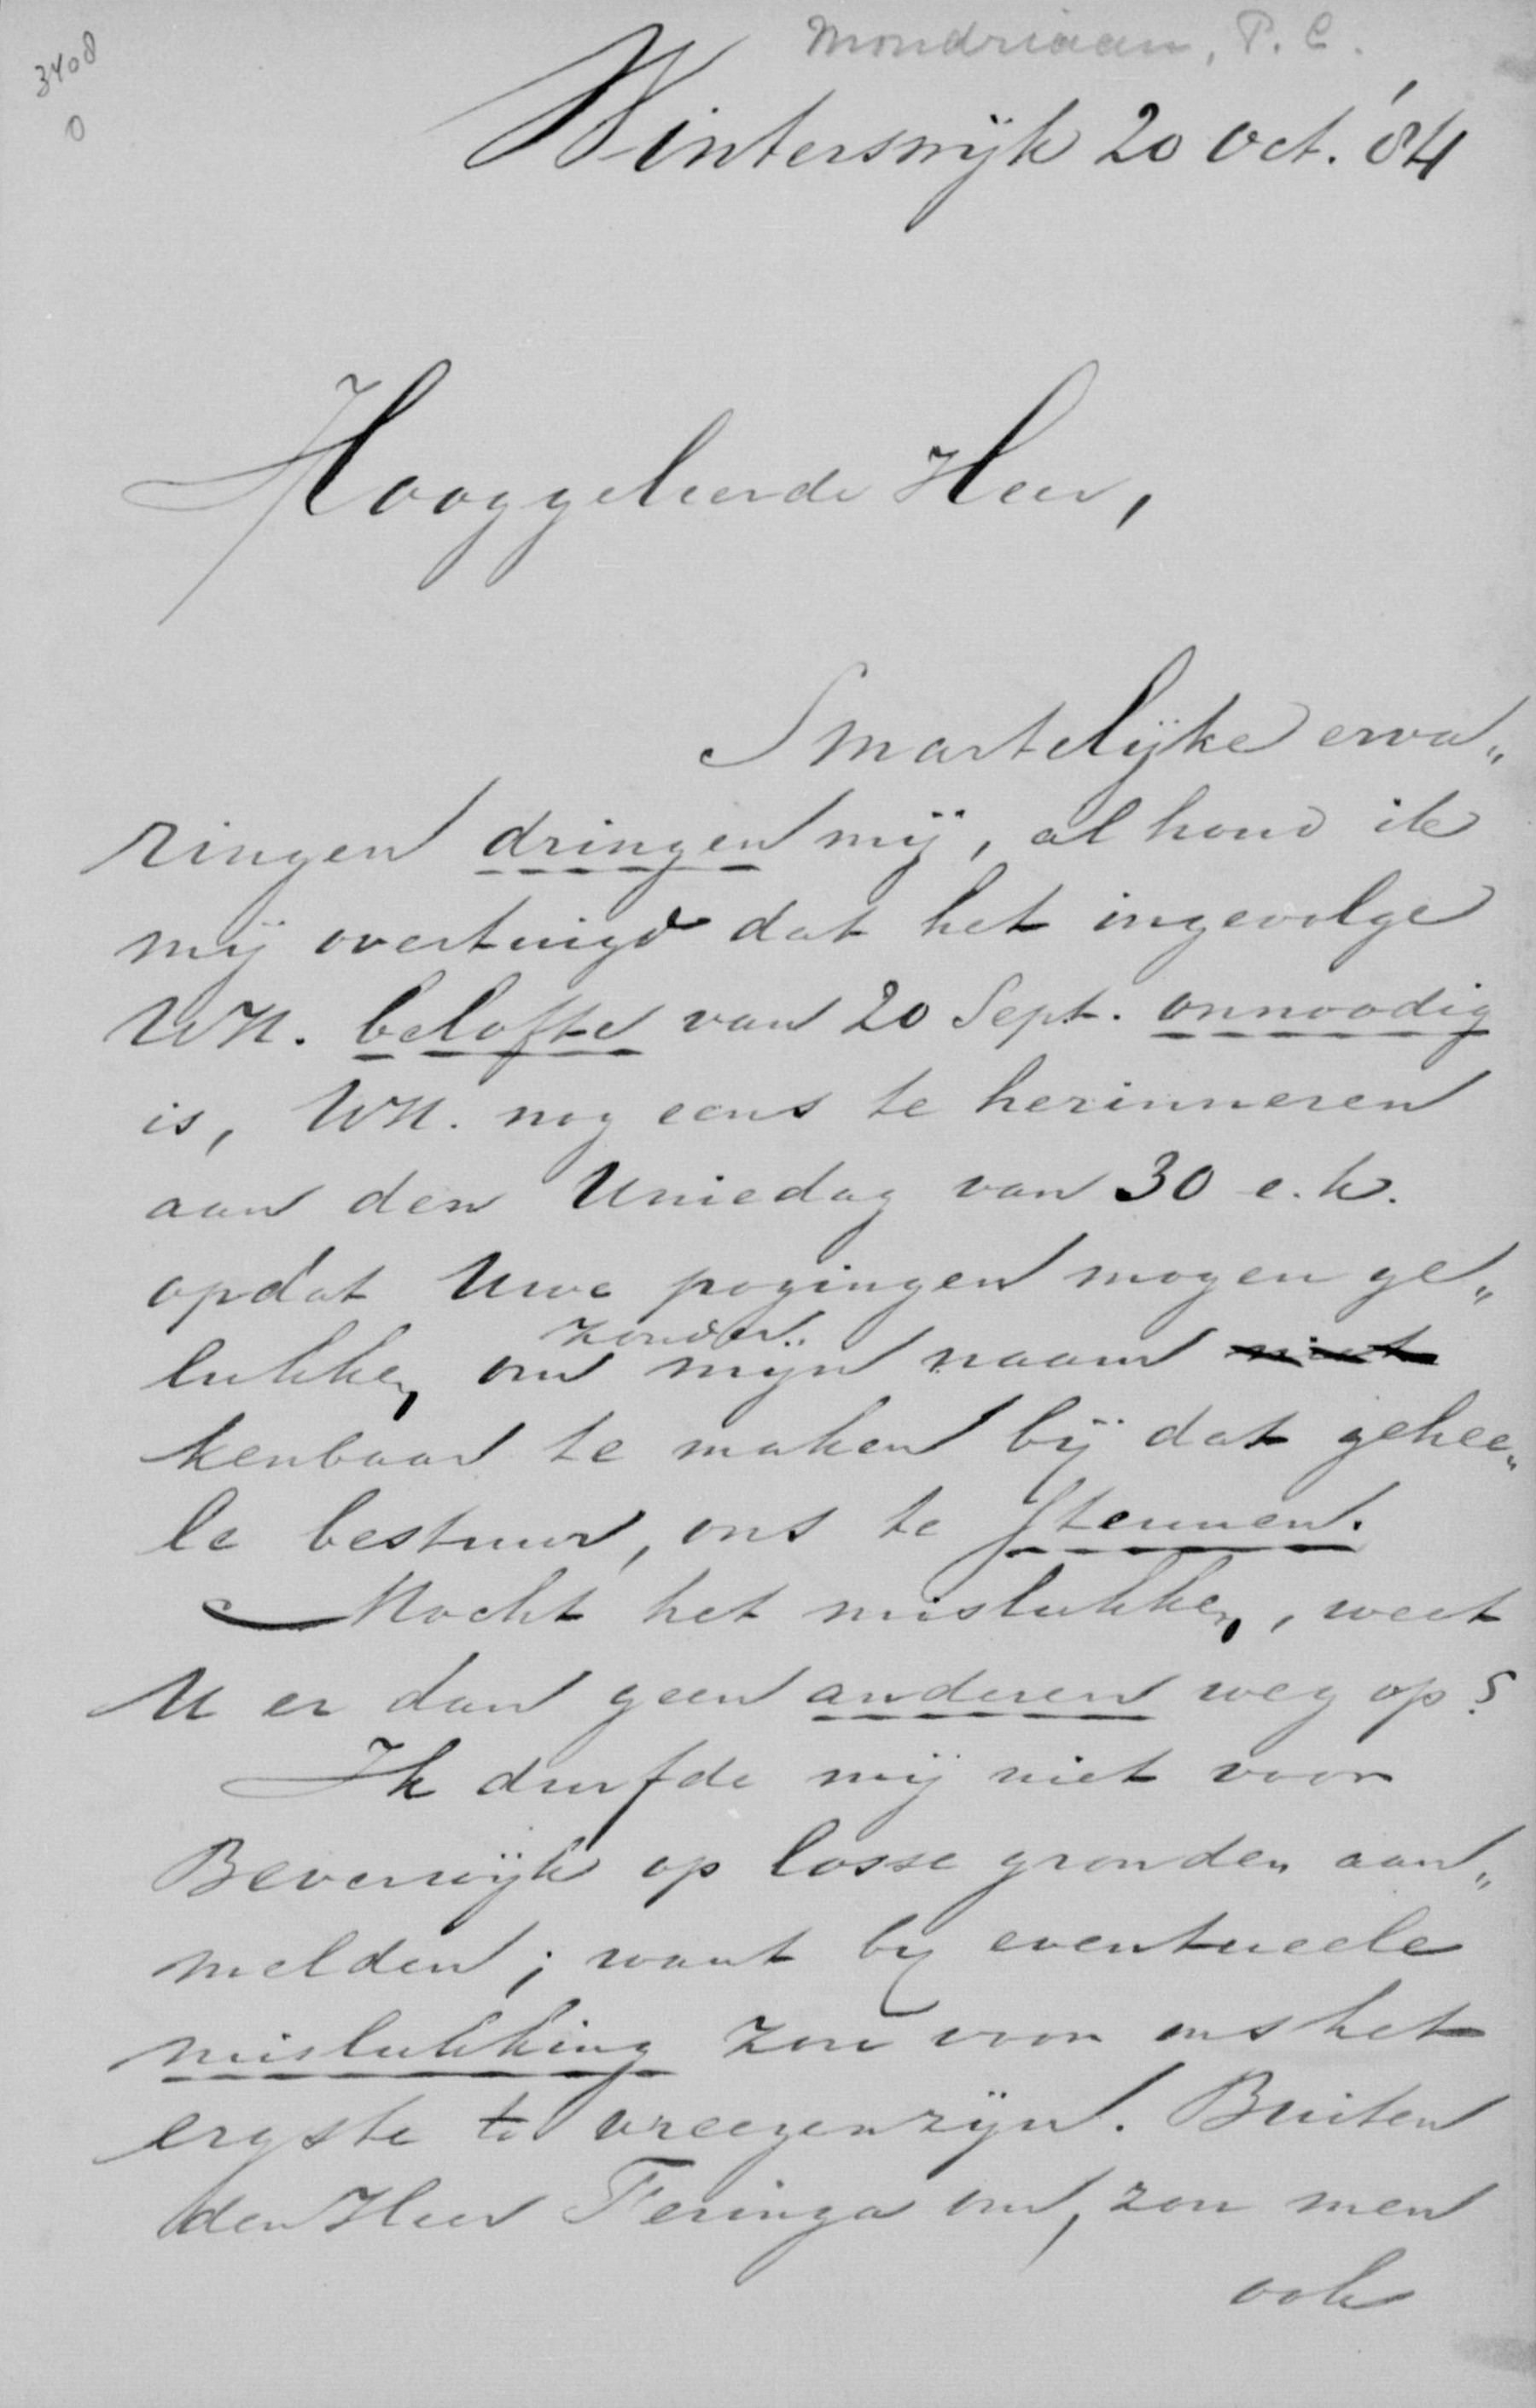 3408
0
Mondriaan, P. C.
Winterswijk 20 Oct. '84
Hooggeleerde Heer,
Smartelijke erva„
ringen dringen mij, al houd ik
mij overtuigd dat het ingevolge
UWH. belofte van 20 Sept. onnoodig
is, UWH. nog eens te herinneren
aan den Uniedag van 30 e.k.
opdat Uwe pogingen mogen ge„
zonder
lukken om mijn naam niet
kenbaar te maken bij dat gehee„
le bestuur, ons te steunen.
Mocht het mislukken, weet
U er dan geen anderen weg op?
Ik durfde mij niet voor
Beverwijk op losse gronden aan„
melden; want by eventueele
mislukking zou voor ons het
ergste te vreezen zijn. Buiten
den Heer Feringa om, zou men
ook